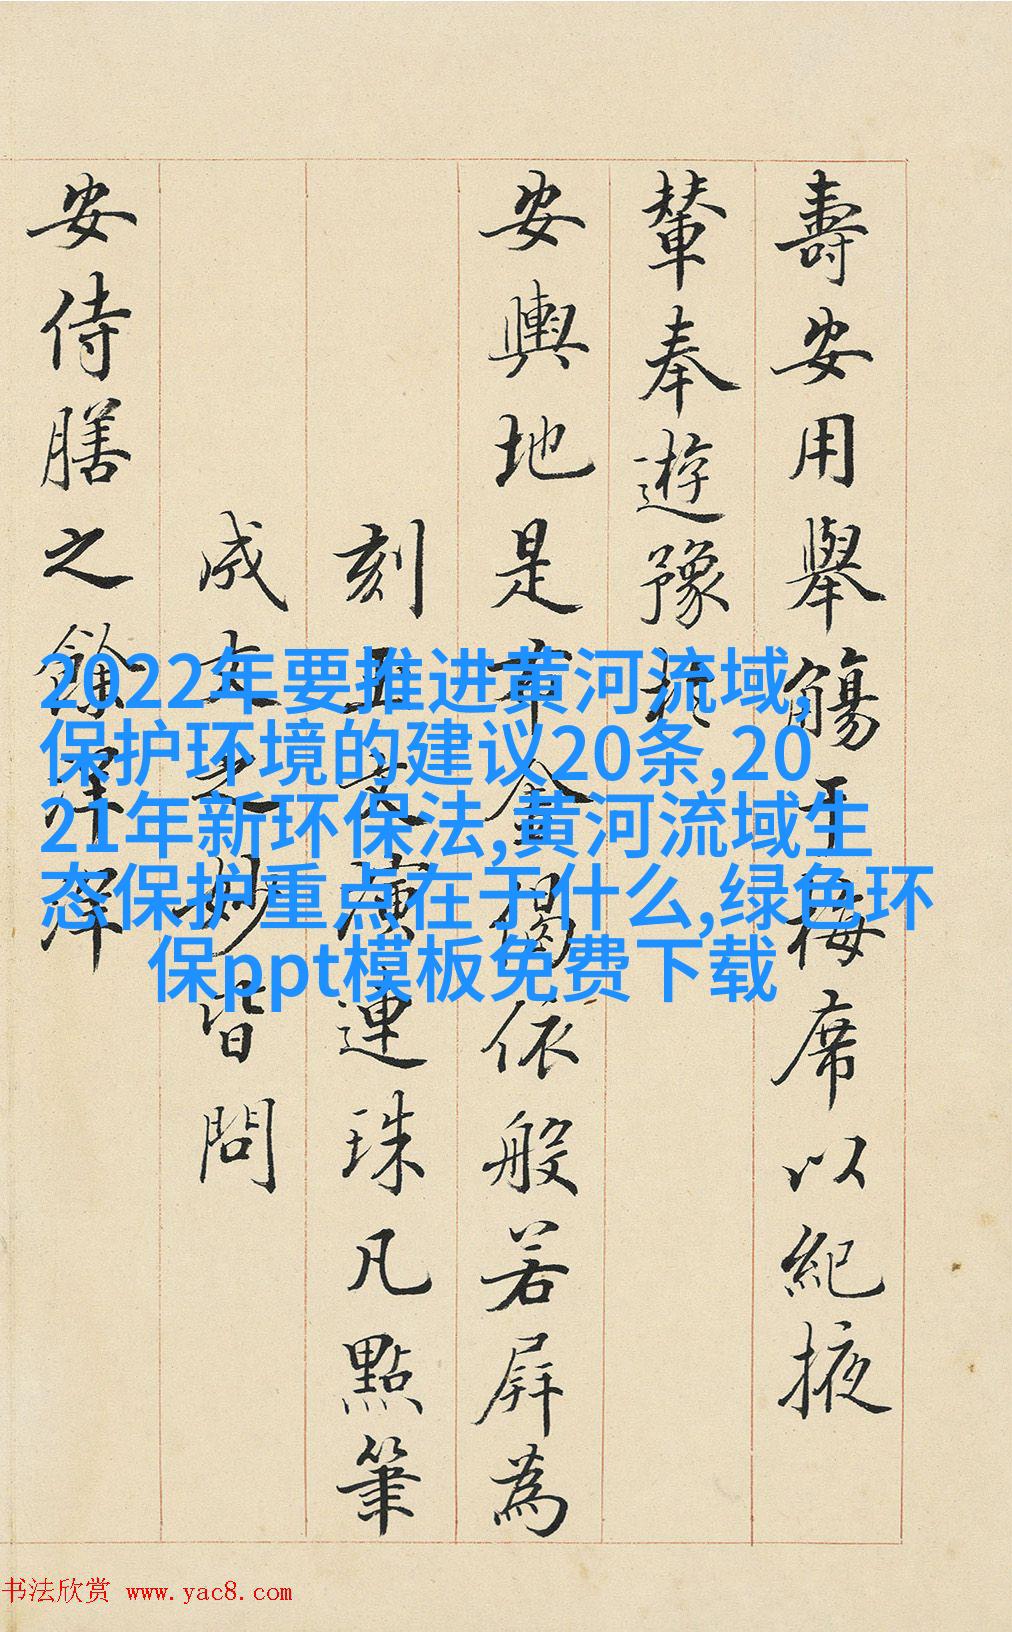 壽安用舉觴于梅席以紀掖
輦奉遊豫扵
安輿地是布金偈依般若屏為
刻廣連珠凡點筆
成之妙皆問
安侍膳之餘
2022年要推进黄河流域,
保护环境的建议20条,20
21年新环保法,黄河流域生
态保护重点在于什么,绿色环
保ppt模板免费下载
书法欣赏 www.yac8.com